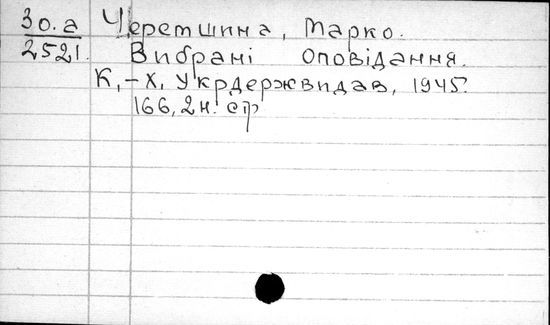 30.а Черемшина, Марко.
2521. Вибрані оповідання.
К,-Х, Укрдержвидав, 1945.
166, 2 н. стр